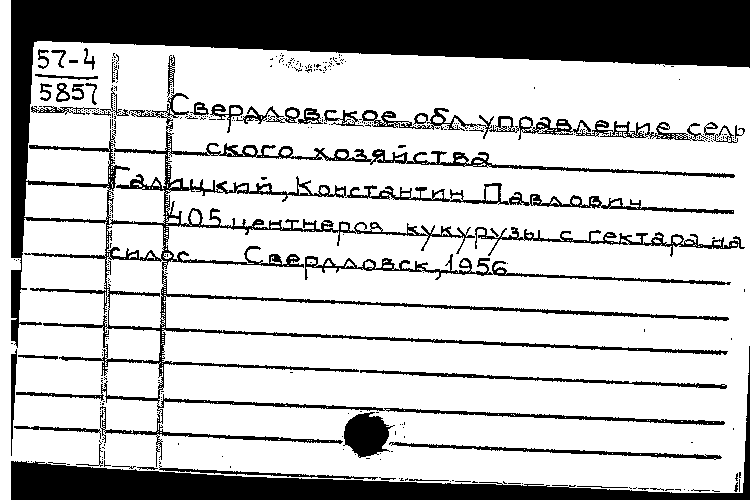 57-4
5857
Свердловское обл управление сель
ского хозяйства
Галицкий, Константин Павлович
405 центнеров кукурузы с гектара на
силос Свердловск, 1956